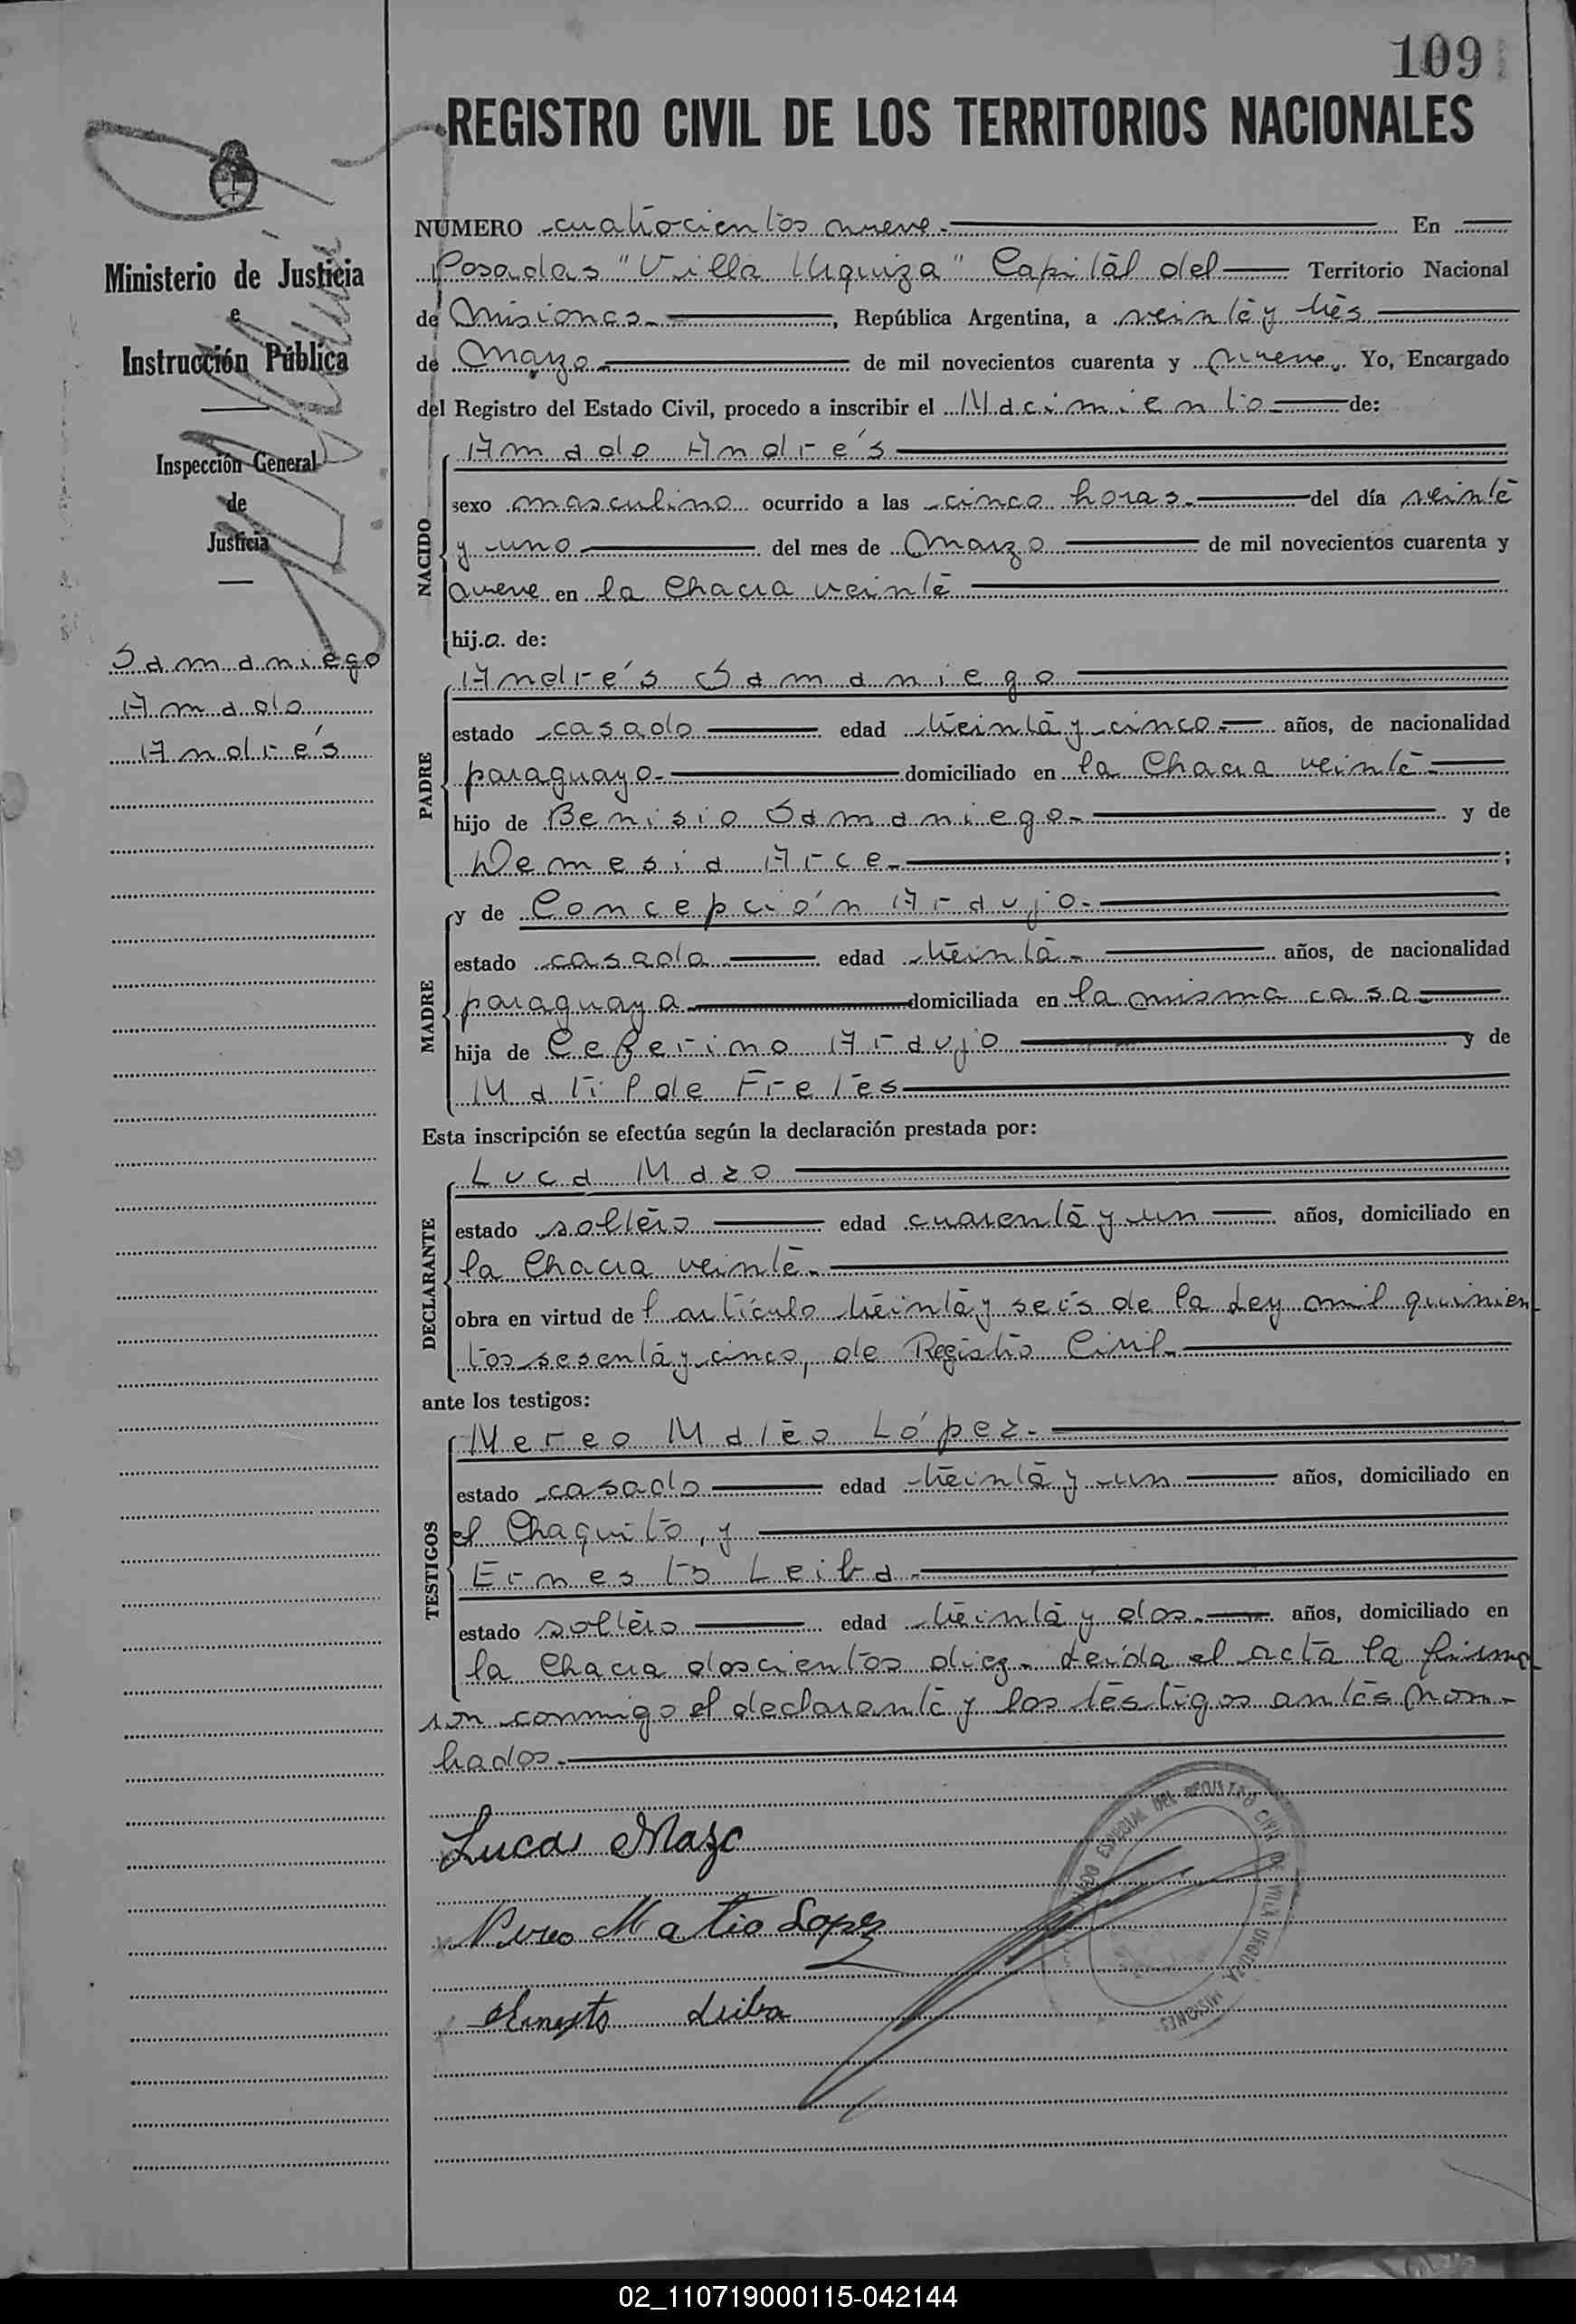 109
REGISTRO CIVIL DE LOS TERRITORIOS NACIONALES
Ministerio de Justicia
e
Instrucción Pública
Inspección General
de
Justicia
Samaniego
Amado
Andrés
NUMERO cuatrocientos nueve.- En
Posadas "Villa Urquiza" Capital del Territorio Nacional
de Misiones.-, República Argentina, a veinte y tres
de Marzo.- de mil novecientos cuarenta y nueve. Yo, Encargado
del Registro del Estado Civil, procedo a inscribir el Nacimiento de:
NACIDO
Amado Andrés
sexo masculino ocurrido a las cinco horas.- del día veinte
y uno del mes de Marzo de mil novecientos cuarenta y
nueve en la Chacra veinte
hij.o. de:
PADRE
Andrés Samaniego
estado casado edad treinta y cinco.- años, de nacionalidad
paraguayo.- domiciliado en la Chacra veinte.-
hijo de Benisio Samaniego.- y de
Nemesia Arce.- ;
MADRE
y de Concepción Araujo.-
estado casada edad treinta.- años, de nacionalidad
paraguaya domiciliada en la misma casa.-
hija de Ceferino Araujo y de
Matilde Fretes
Esta inscripción se efectúa según la declaración prestada por:
DECLARANTE
Luca Mazo
estado soltero edad cuarenta y un años, domiciliado en
la Chacra veinte.-
obra en virtud de l artículo treinta y seis de la Ley mil quinien
tos sesenta y cinco, de Registro Civil.-
ante los testigos:
TESTIGOS
Nereo Mateo López.-
estado casado edad treinta y un años, domiciliado en
el Chaquito, y
Ernesto Leiba.-
estado soltero edad treinta y dos.- años, domiciliado en
la Chacra doscientos diez.- Leída el acta la firma
ron conmigo el declarante y los testigos antes nom-
brados.-
Lucas Mazo
Nereo Matio Lopez
Ernesto Leiba
ESPECIAL DEL REGISTRO CIVIL DE VILLA URQUIZA
MISIONES
02_110719000115-042144